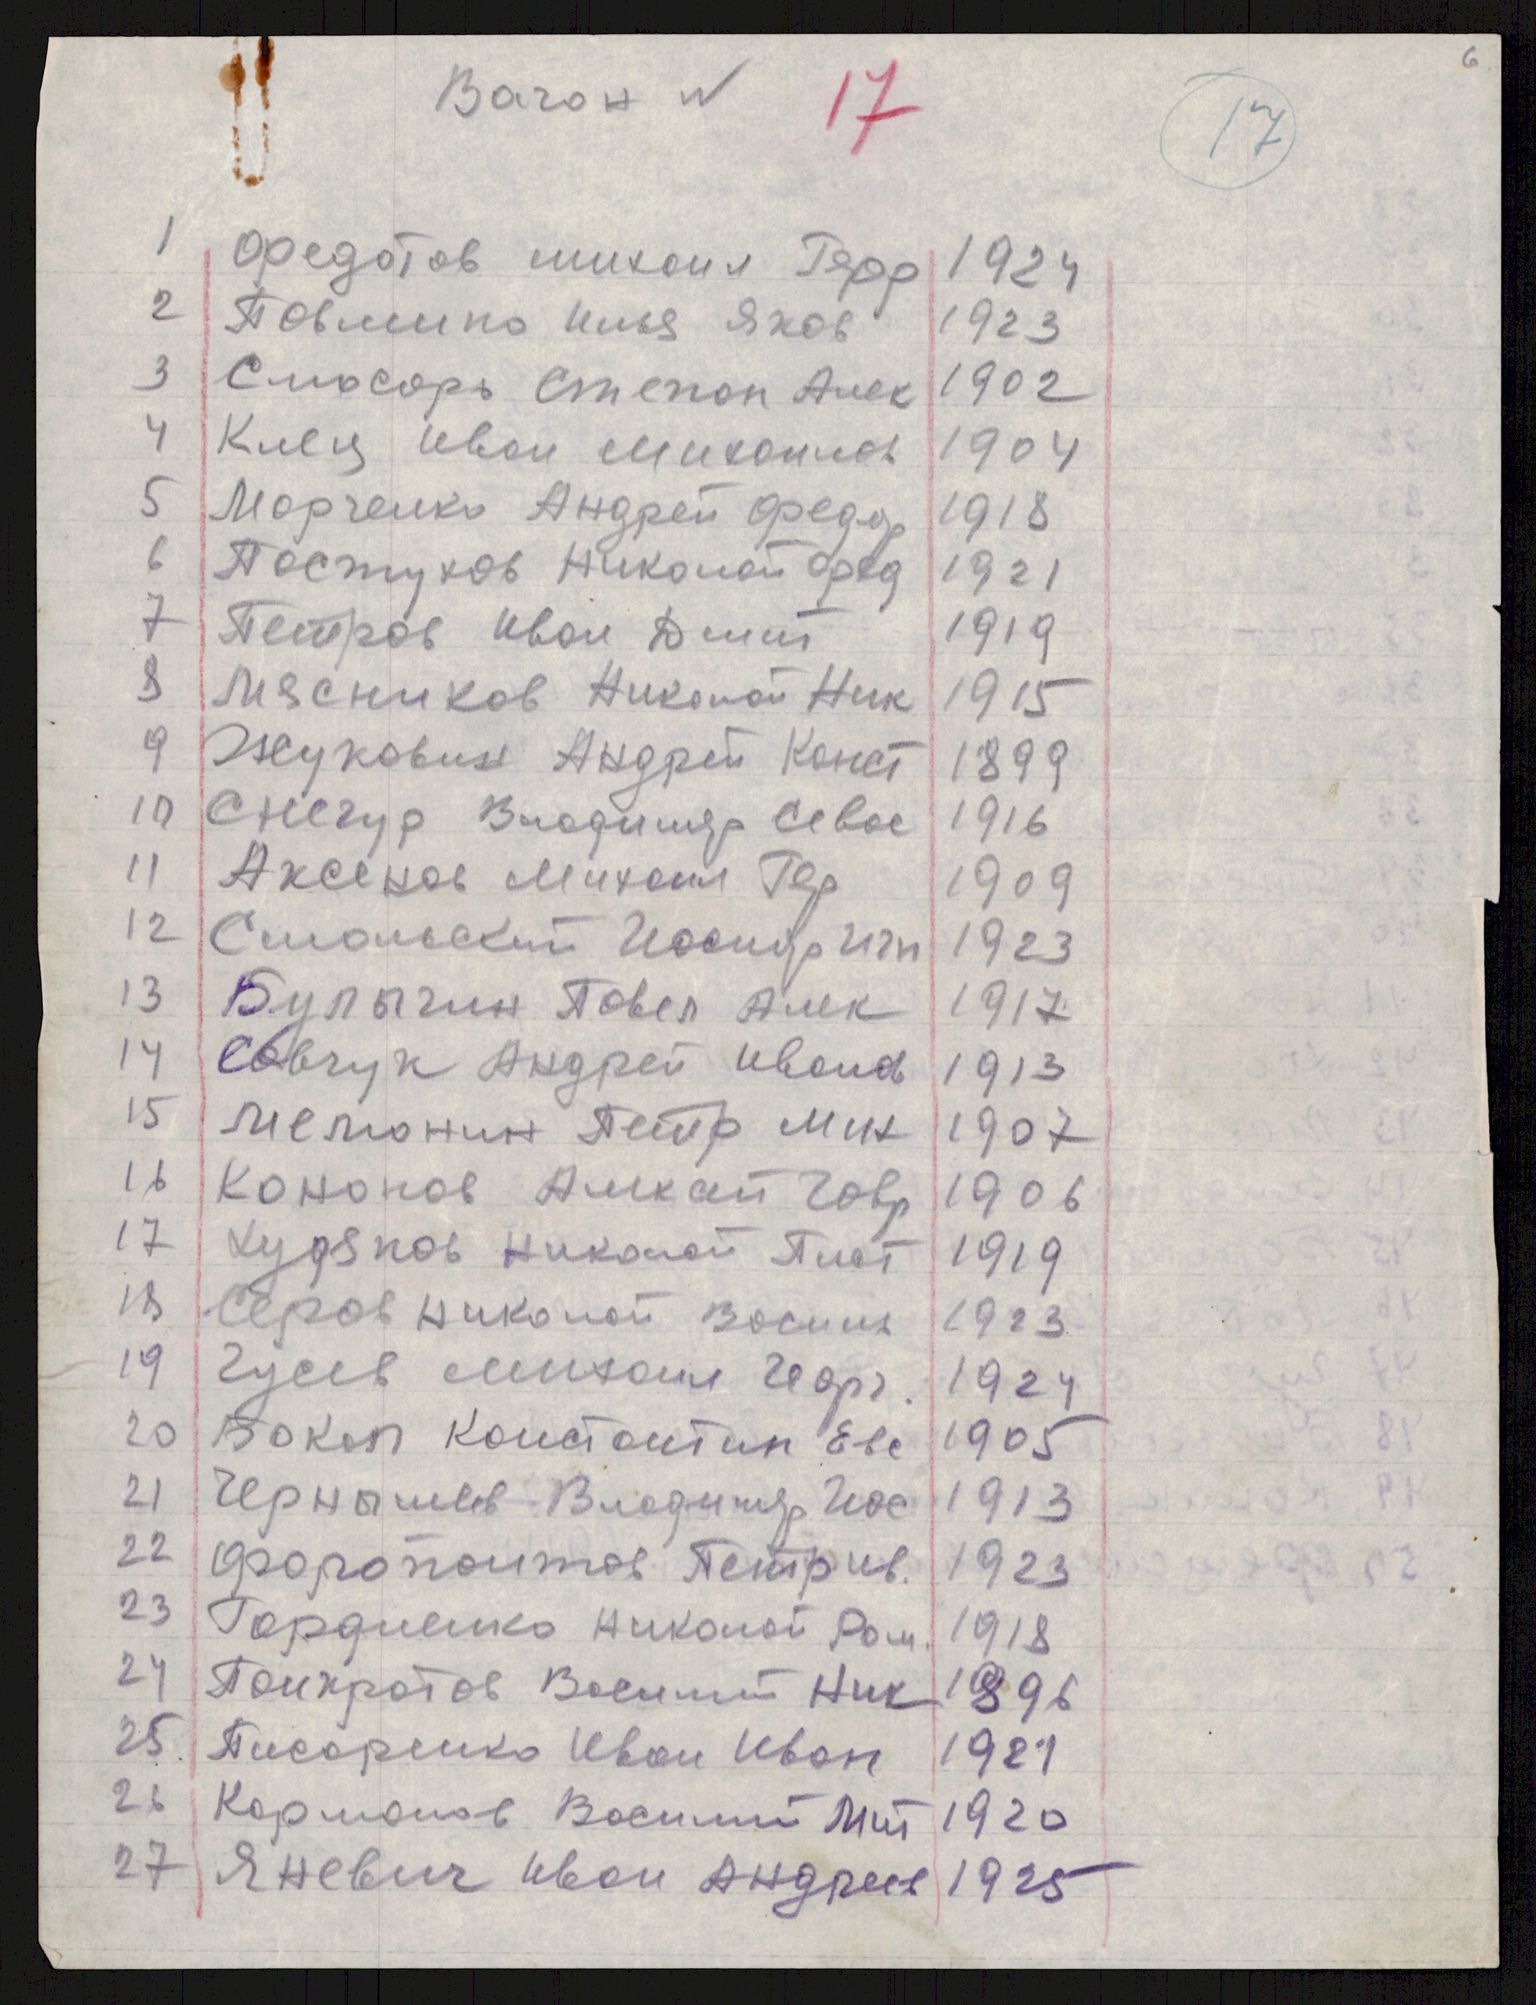 6
Вагон № 17
17
1 Федотов Михаил Терр 1924
2 Повшино Илья Яков 1923
3 Слюсарь Степан Алек 1902
4 Клец Иван Михаилов 1904
5 Марченко Андрей Федор 1918
6 Пастухов Николай Фед 1921
7 Петров Иван Дмит 1919
8 Мясников Николай Ник 1915
9 Жукович Андрей Конст 1899
10 Снегур Владимир Севас 1916
11 Аксенов Михаил Гер 1909
12 Смольский Иосиф Игн 1923
13 Булычин Павел Алек 1917
14 Савчук Андрей Иванов 1913
15 Мелюнин Петр Мих 1907
16 Кононов Алексей Гавр 1906
17 Худяков Николай Плат 1919
18 Серов Николай Васил 1923
19 Гусев Михаил Георг. 1924
20 Вокап Константин Евс 1905
21 Чернышев Владимир Иос 1913
22 Фарапонтов Петр Ив. 1923
23 Гордиенко Николай Ром. 1918
24 Панкратов Василий Ник 1896
25. Писаренко Иван Иван 1921
26 Карманов Василий Мит 1920
27 Яневич Иван Андреев 1925